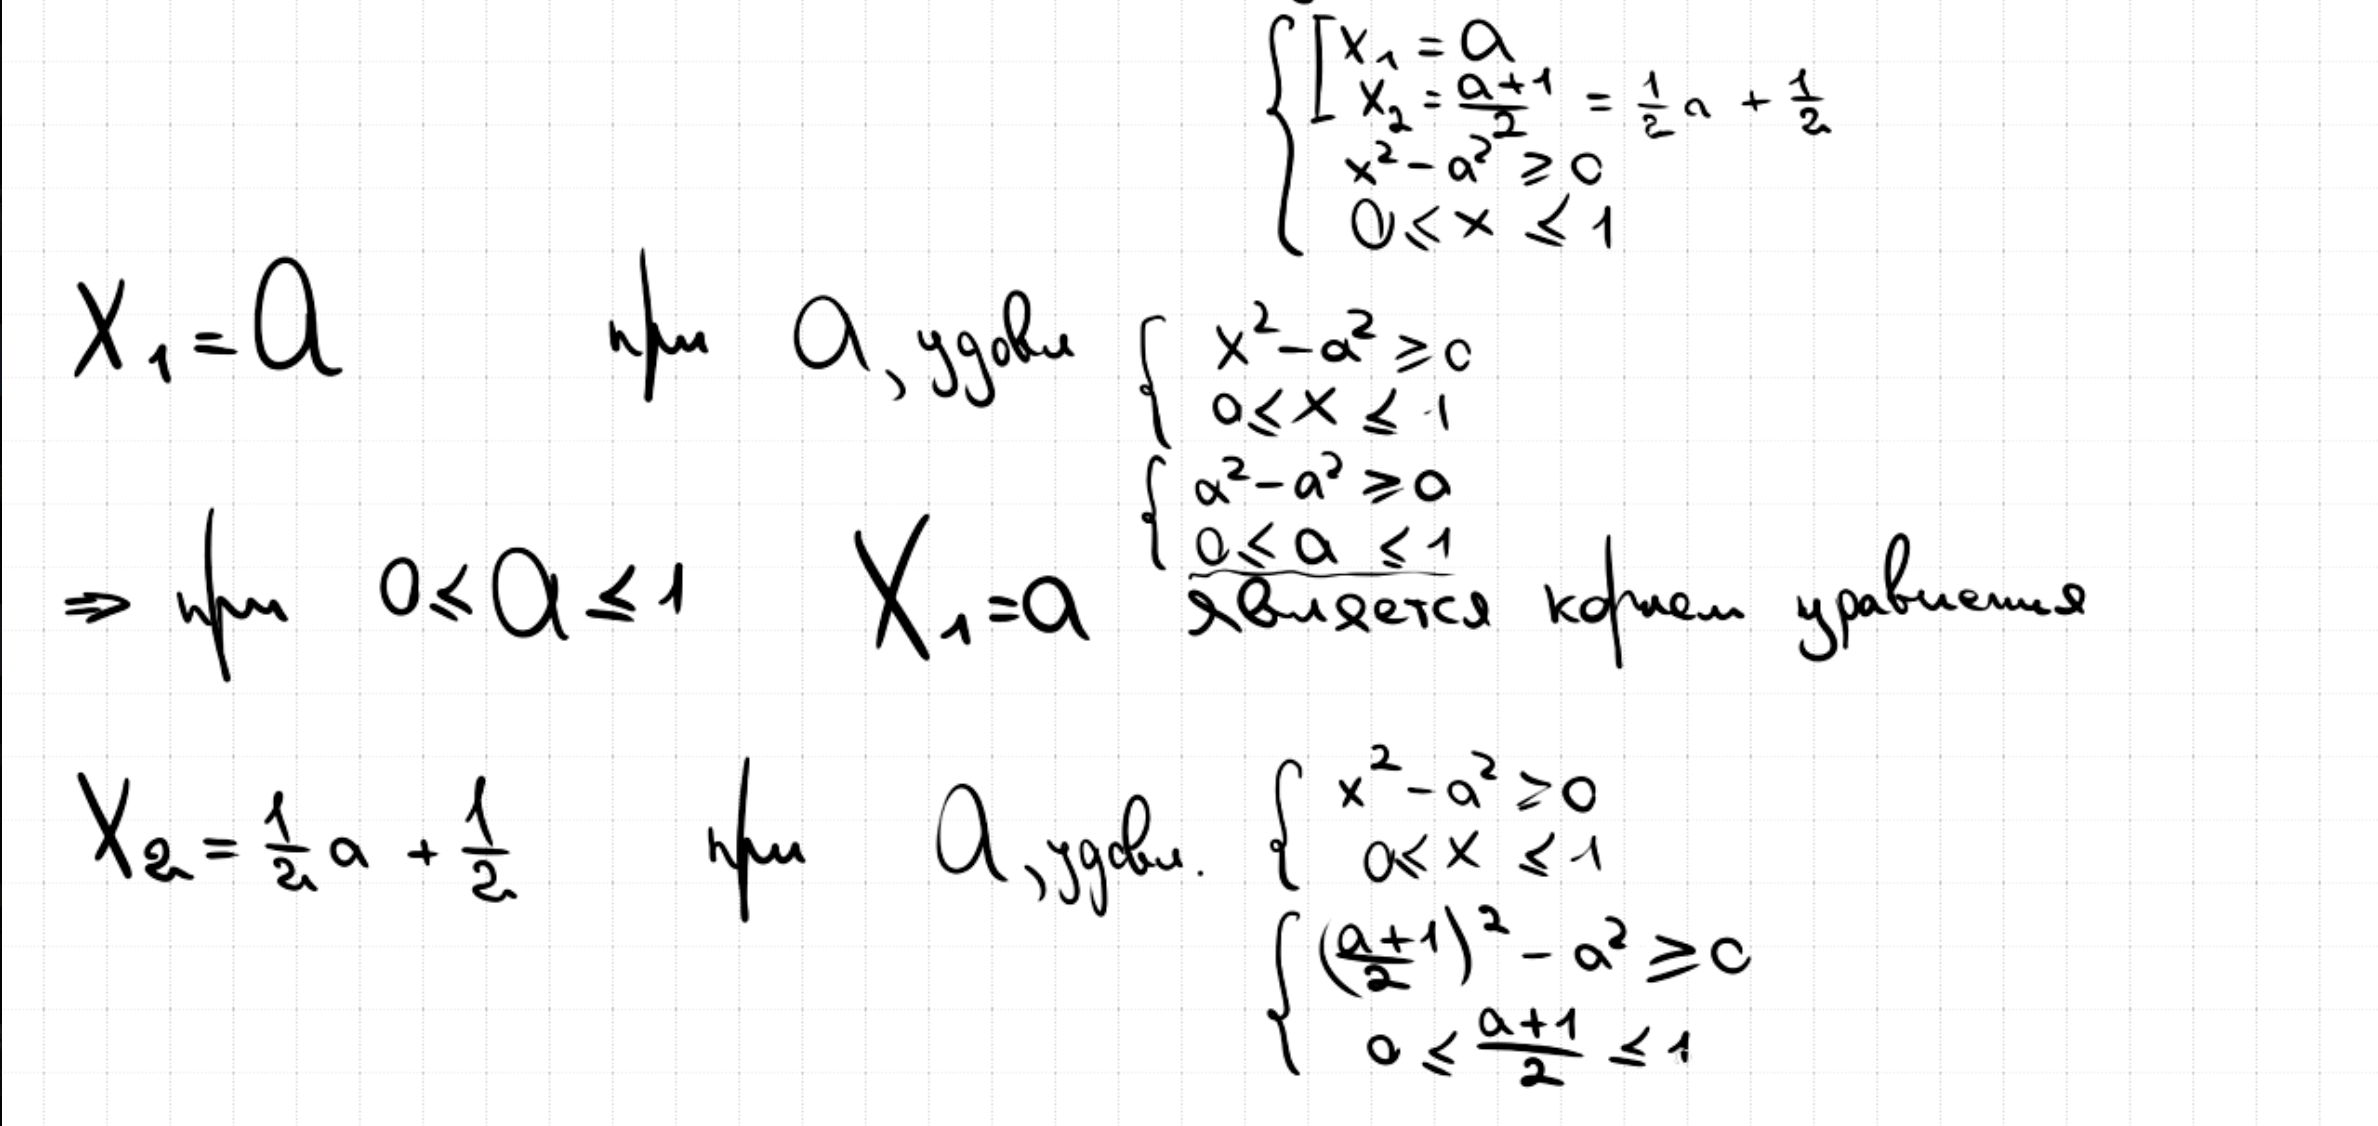 x₁ = a
x₂ = (a+1)/2 = 1/2 a + 1/2
x² - a² ≥ 0
0 ≤ x ≤ 1
x₁ = a при a, удовл
x² - a² ≥ 0
0 ≤ x ≤ 1
a² - a² ≥ 0
0 ≤ a ≤ 1
⇒ при 0 ≤ a ≤ 1 x₁ = a является корнем уравнения
x₂ = 1/2 a + 1/2 при a, удовл.
x² - a² ≥ 0
0 ≤ x ≤ 1
((a+1)/2)² - a² ≥ 0
0 ≤ (a+1)/2 ≤ 1